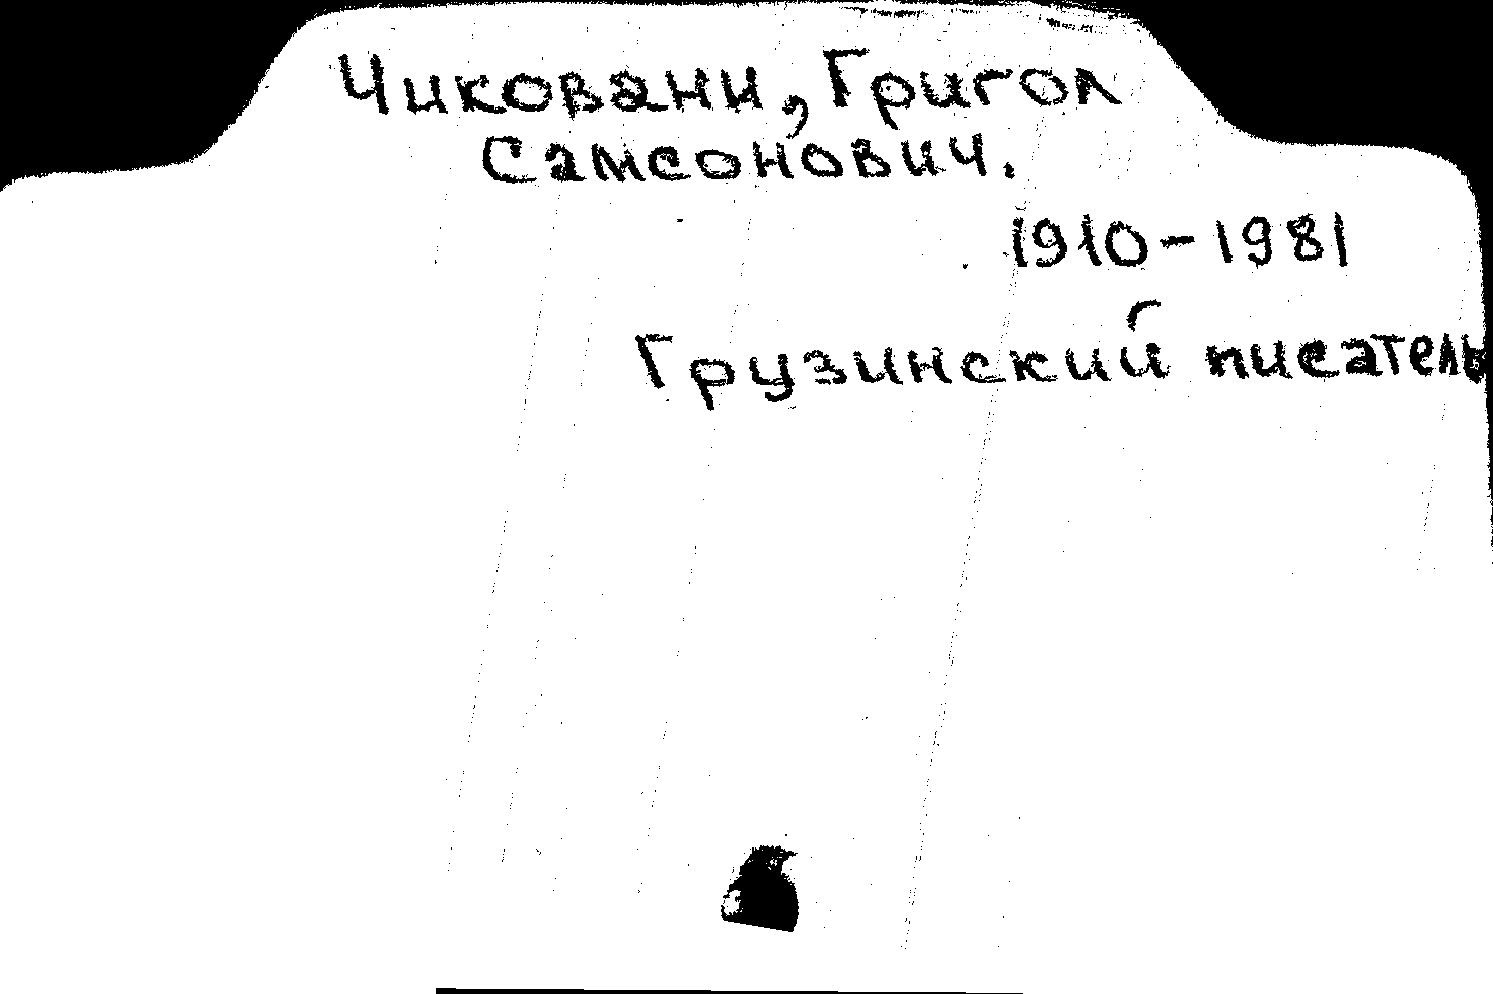 Чиковани, Григол
Самсонович.
1910-1981
Грузинский писатель